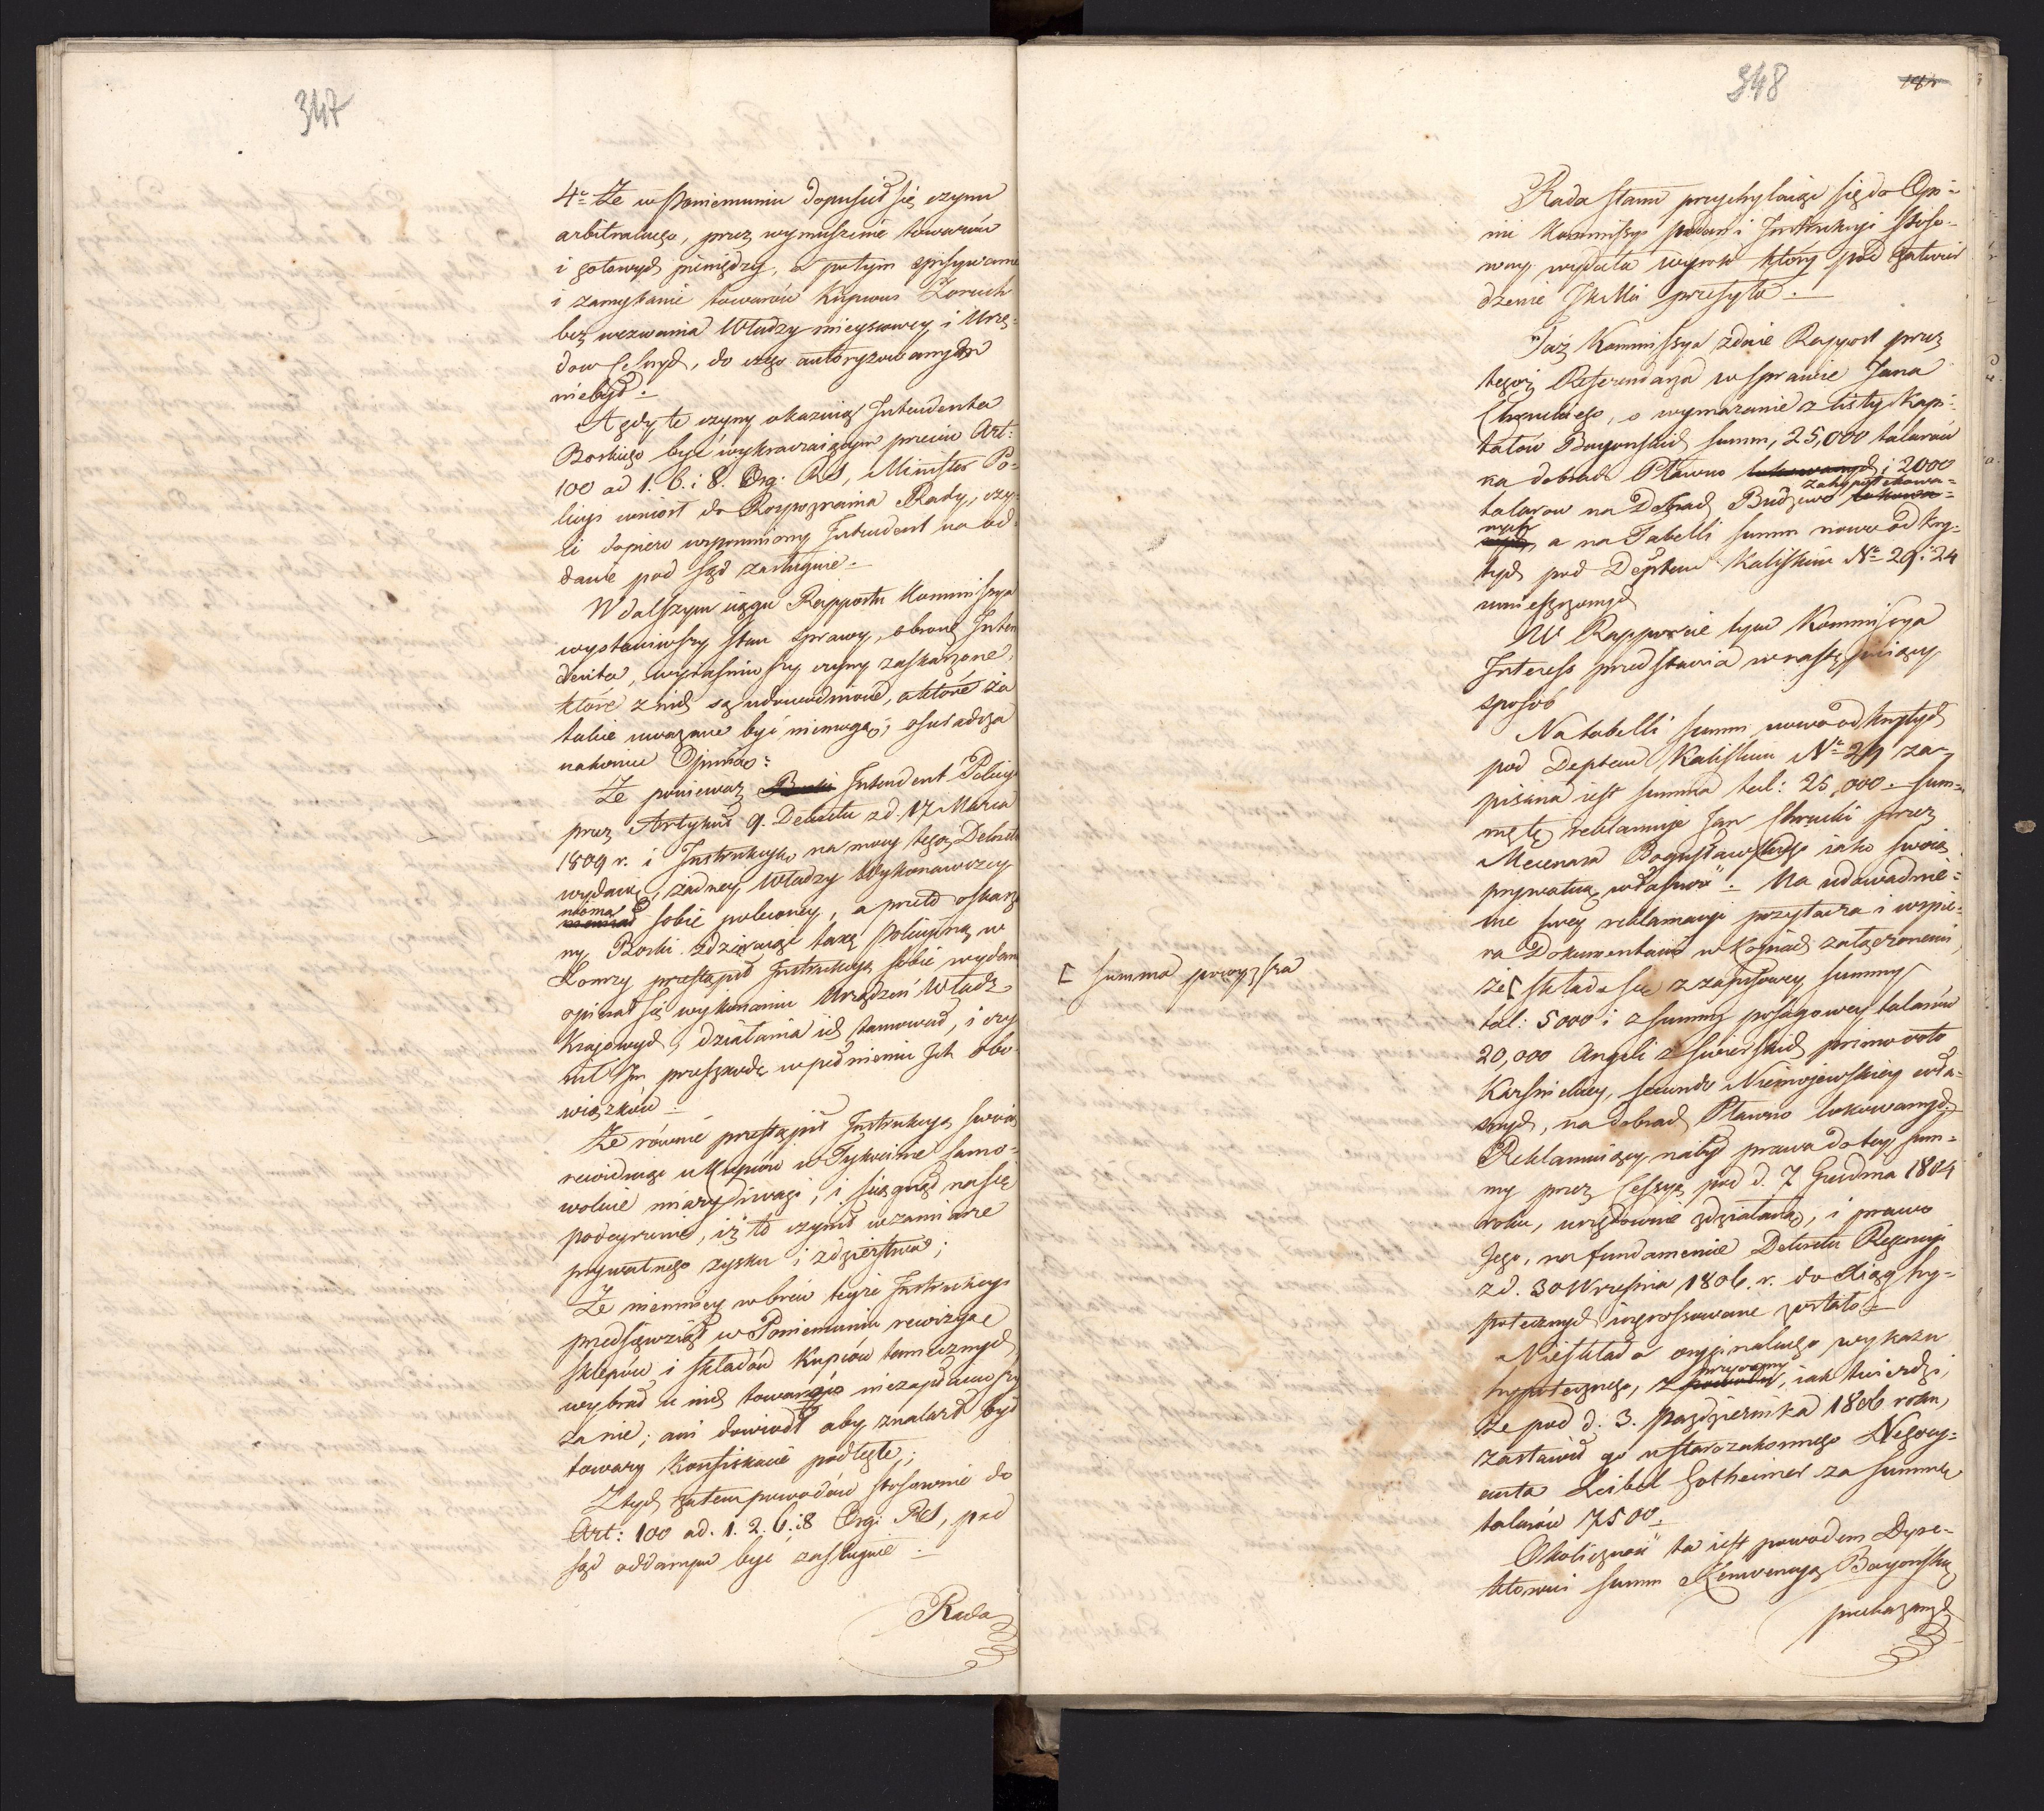 347
4° Że w Poniemuniu dopuścił się czynu
arbitralnego, przez wymuszenie towarów
i gotowych pieniędzy, a potym opisywanie
i zamykanie towarów Kupcowi Zoruch
bez wezwania Władzy mieyscowey i Urzę-
dow Celnych, do czego autoryzowanym
niebył.
A gdy te czyny okazuią Intendenta
Boskiego być wykraczaiącym przeciw Art:
100 ad 1. 6. i 8. Org: RS, Minister Po-
licyi wniosł do Rozpoznania Rady, czy-
li dopiero wspomniony Intendent na od-
danie pod Sąd zasługuie.
W dalszym ciągu Rapportu Kommissya
wystawiwszy stan sprawy, obronę Inten
denta, wyiaśniwszy czyny zaskarzone,
które z nich są udowodnione, a które za
takie uważane być niemogą; oświadcza
nakoniec Opinią:
Że ponieważ Boski Intendent Policyi
przez Artykuł 9. Dekretu z d. 17 Marca
1809 r. i Instrukcyą na mocy tegoż Dekretu
wydaną, żadney Władzy Wykonawczey
niema sobie poleconey, a przeto oskarżo
ny Boski zdzieraiąc taxę policyiną w
Łomży przestąpił Instrukcyą sobie wydaną
opierał się wykonaniu Urządzeń Władz
Kraiowych, działania ich tamował, i czy
nił Im przeszkodę w pełnieniu Ich obo-
wiązków.
Że równie przestąpił Instrukcyą swoią
rewiduiąc u Kupców w Tykocinie samo-
wolnie miary i wagi, i ściągnął na się
podeyrzenie, iż to czynił w zamiarze
prywatnego zysku i zdzierstwa;
Że niemniey wbrew teyże Instrukcyi
przedsięwziął w Poniemuniu rewizyą
sklepów i składów Kupców tamecznych,
wybrał u nich towary nie zapłaciwszy
za nie; ani dowiodł aby znalazł był
towary konfiskacie podległe;
Z tych zatem powodów stosownie do
Art: 100 ad. 1. 2. 6. i 8 Org: RS, pod
sąd oddanym być zasługuie.
Rada
348
Rada Stanu przychylaiąc się do Opi-
nii Kommissyi Podań i Instrukcyi stoso-
wny wydała wyrok który pod zatwier
dzenie JKMci przesyła.
Taż Kommissya zdaie Rapport przez
tegoż Referendarza w sprawie Jana
o wymazanie z listy Kapi-
tałów Bayońskich summ, 25,000 talarów
na dobrach Pławno lokowanych i 2000
zahypotekowa-
talarow na Dobrach Budziewo lokowa-
nych
a na Tabelli summ nowo odkry-
tych pod Deptem Kaliskim № 29. i 24
umieszczonych
W Rapporcie tym Kommissya
Interess przedstawia w następuiący
sposób
Na tabelli summ nowo odkrytych
pod Deptem Kaliskim № 29 za-
pisana iest summa tal: 25,000. Sum-
mę tę reklamuie Jan przez
Mecenasa Bogusławskiego iako swoią
prywatną własność. Na udowadnie-
nie swey reklamacyi przytacza i wspie-
ra Dokumentami w kopiach załączonemi,
[ summa powyższa
że [ składa się z zapisowey summy
tal: 5000 i z summy posagowey talarów
20,000 Angeli z primo voto
secundo Niemojewskiey wła-
snych, na dobrach Pławno lokowanych.
Reklamuiący nabył prawa do tey sum-
my przez Cessyą pod d. 7 Grudnia 1804
roku, urzędownie zdziałaną, i prawo
Jego, na fundamencie Dekretu Regencyi
z d. 30 Września 1806. r. do Xiąg hy-
potecznych ingrossowane zostało.
Nieskłada oryginalnego wykazu
przyczyny
hypotecznego, z powodu, iak twierdzi,
że pod d. 3. Października 1806 roku,
zastawił go u starozakonnego Negocy-
anta Leibel Gotheimer za summę
talarów 7500.
Okoliczność ta iest powodem Dyre-
ktorowi summ Konwencyą Bayońską
przekazanych